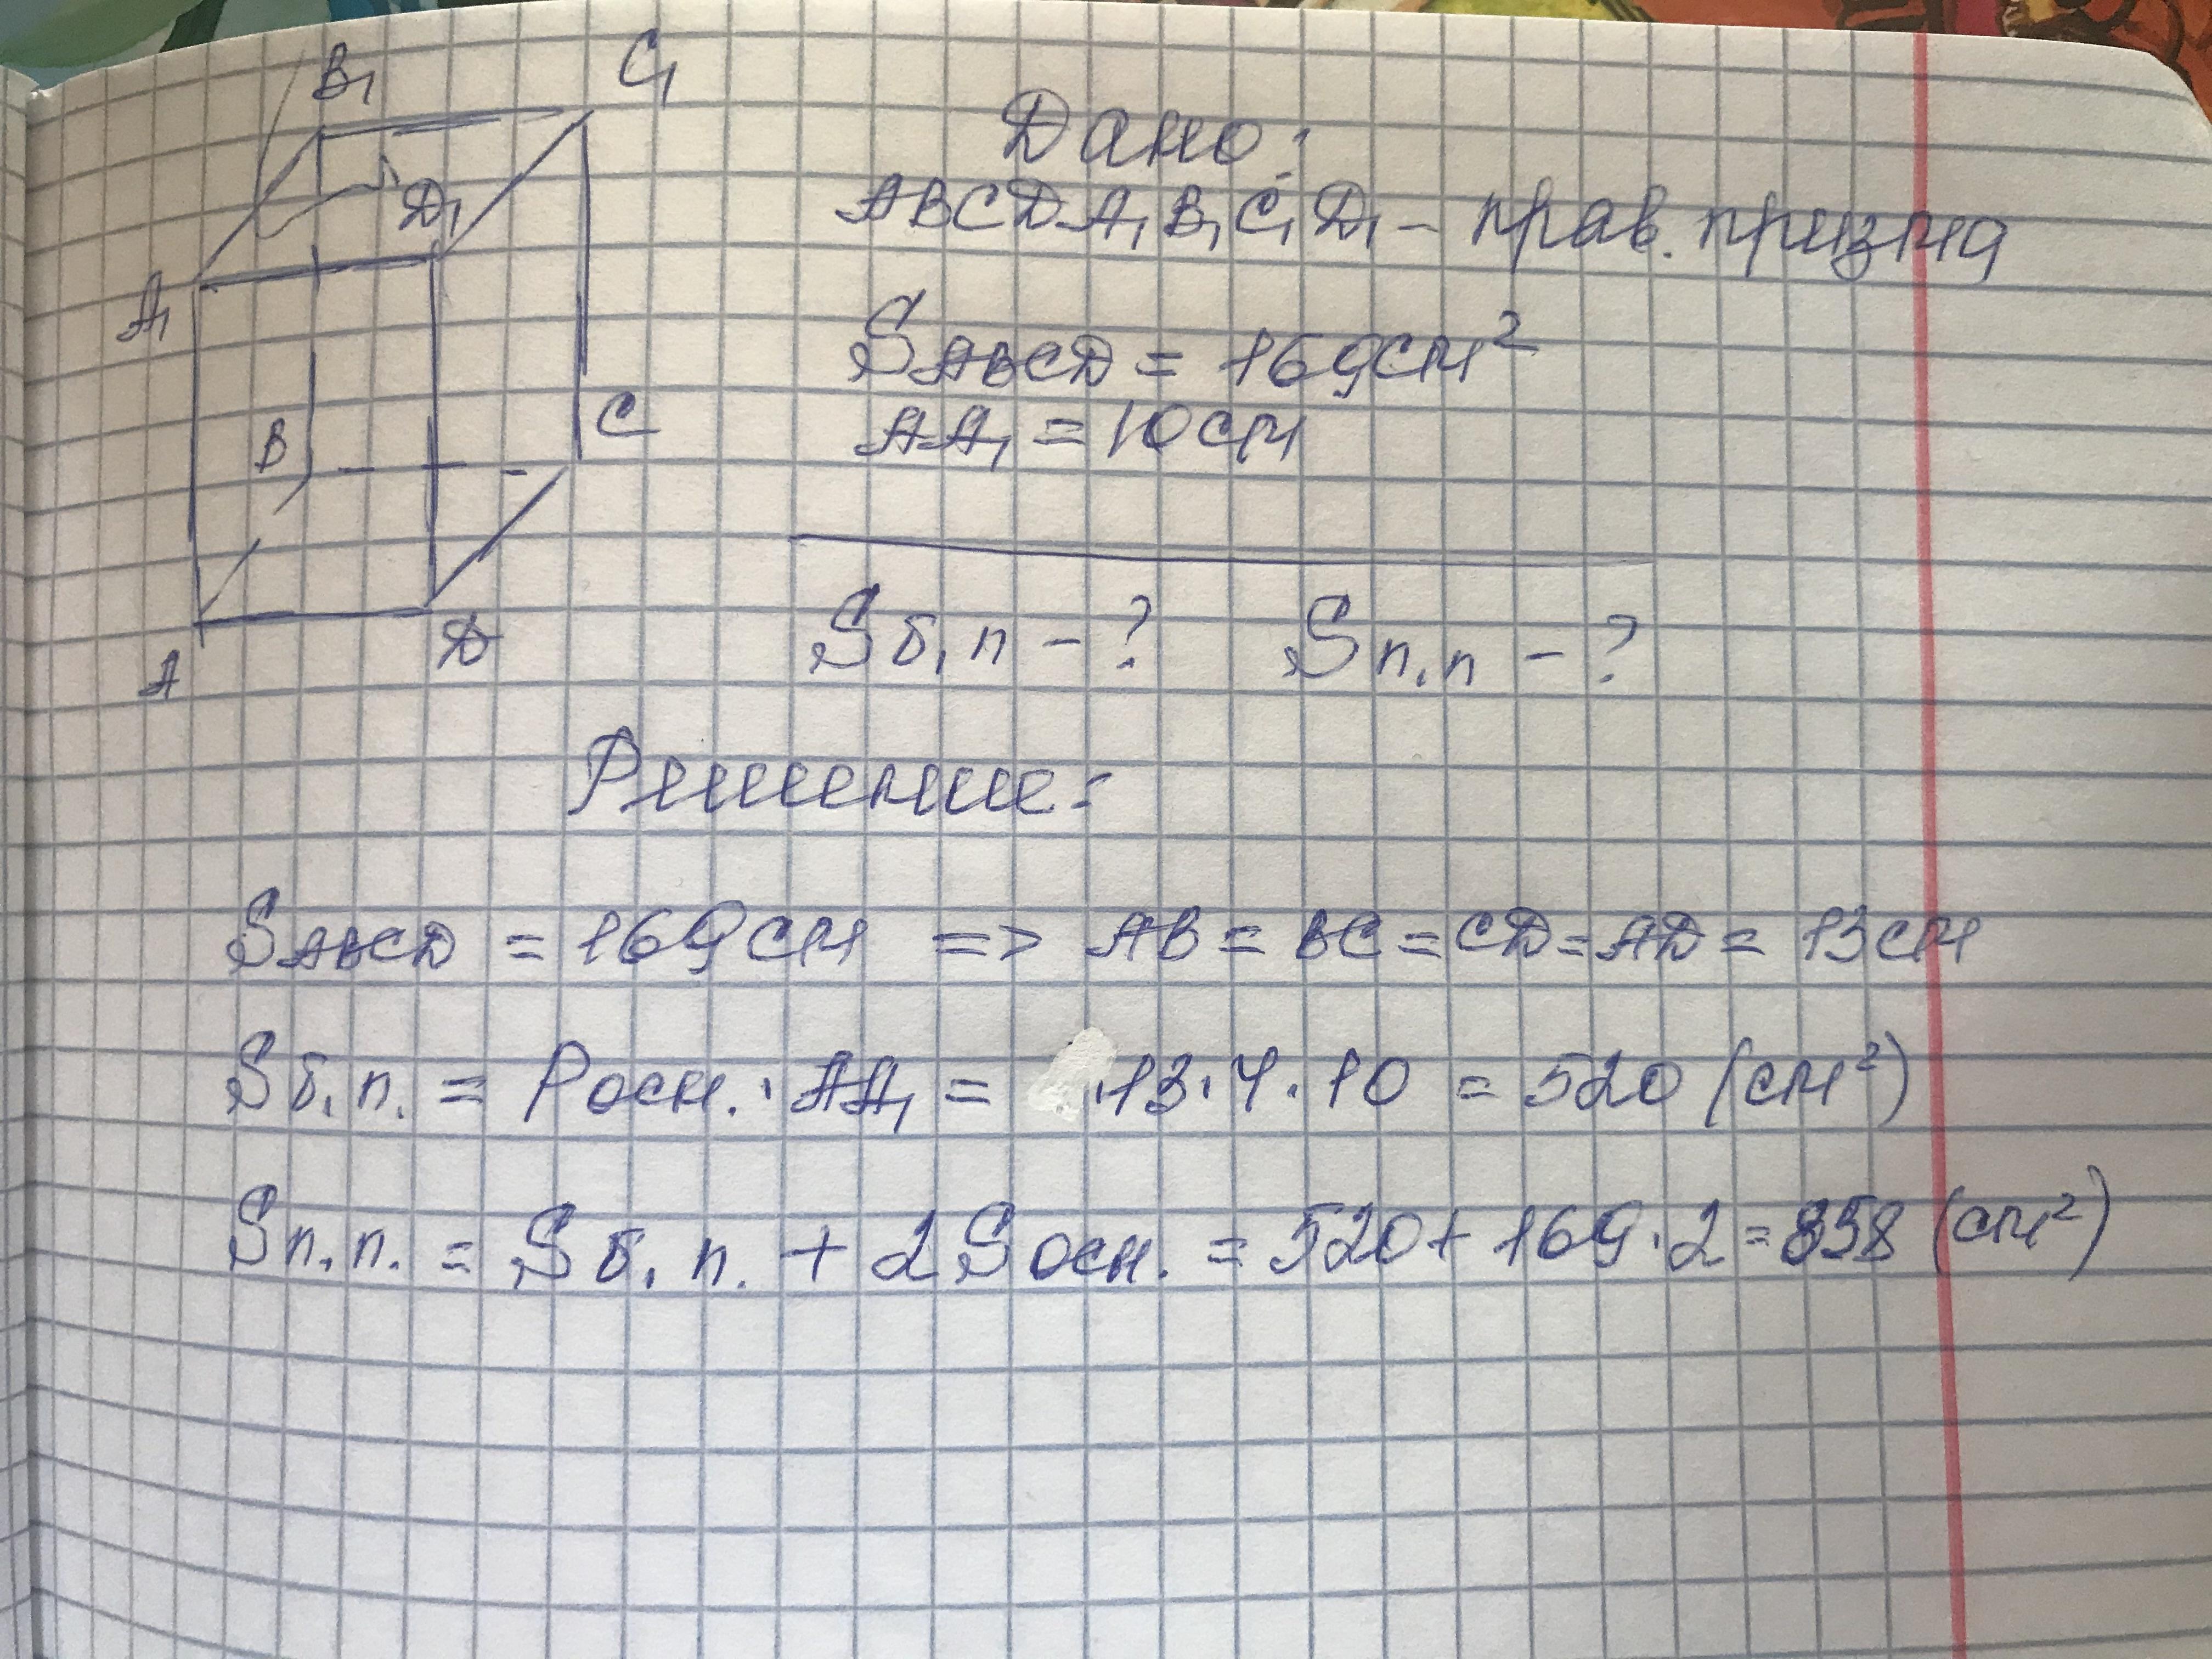 B₁
C₁
D₁
A₁
B
C
A
D
Дано:
ABCDA₁B₁C₁D₁ – прав. призма
SABCD = 169см²
AA₁ = 10см
Sб.п – ? Sп.п – ?
Решение:
SABCD = 169см => AB = BC = CD = AD = 13см
Sб.п. = Pосн. · AA₁ = · 13 · 4 · 10 = 520 (см²)
Sп.п. = Sб.п. + 2Sосн. = 520 + 169 · 2 = 858 (см²)